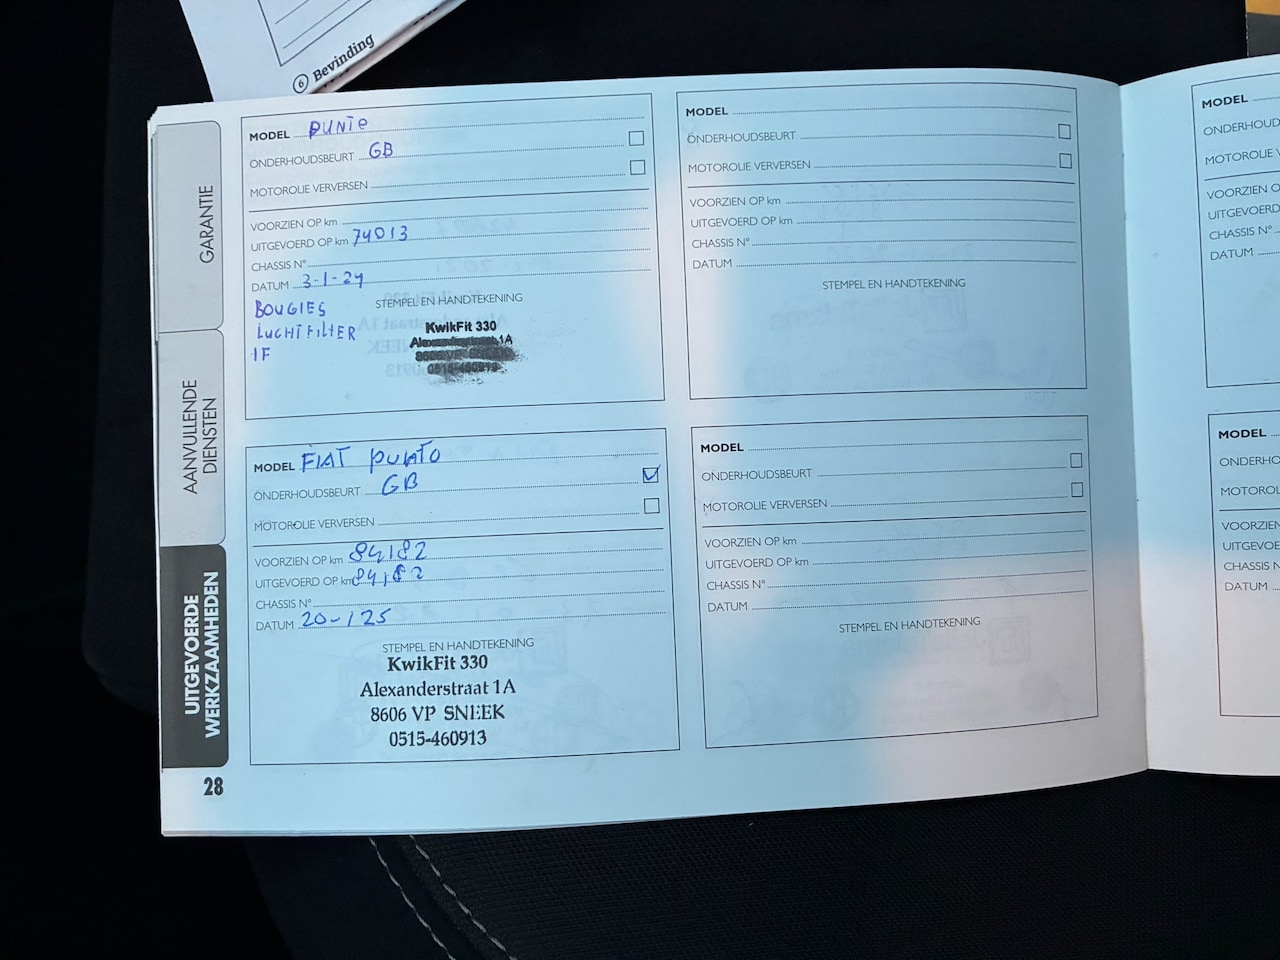 6 Bevinding
GARANTIE
AANVULLENDE
DIENSTEN
UITGEVOERDE
WERKZAAMHEDEN
28
MODEL PUNTO
ONDERHOUDSBEURT GB
MOTOROLIE VERVERSEN
VOORZIEN OP km
UITGEVOERD OP km 74013
CHASSIS N°
DATUM 3-1-24
STEMPEL EN HANDTEKENING
BOUGIES
LUCHTFILTER
IF
KwikFit 330
Alexanderstraat 1A
8606 VP SNEEK
0515-460913
MODEL FIAT PUNTO
ONDERHOUDSBEURT GB
MOTOROLIE VERVERSEN
VOORZIEN OP km 84182
UITGEVOERD OP km 84182
CHASSIS N°
DATUM 20-1 25
STEMPEL EN HANDTEKENING
KwikFit 330
Alexanderstraat 1A
8606 VP SNEEK
0515-460913
MODEL
ONDERHOUDSBEURT
MOTOROLIE VERVERSEN
VOORZIEN OP km
UITGEVOERD OP km
CHASSIS N°
DATUM
STEMPEL EN HANDTEKENING
MODEL
ONDERHOUDSBEURT
MOTOROLIE VERVERSEN
VOORZIEN OP km
UITGEVOERD OP km
CHASSIS N°
DATUM
STEMPEL EN HANDTEKENING
MODEL
ONDERHOUD
MOTOROLIE V
VOORZIEN O
UITGEVOERD
CHASSIS N°
DATUM
MODEL
ONDERHO
MOTOROL
VOORZIEN
UITGEVOE
CHASSIS N
DATUM